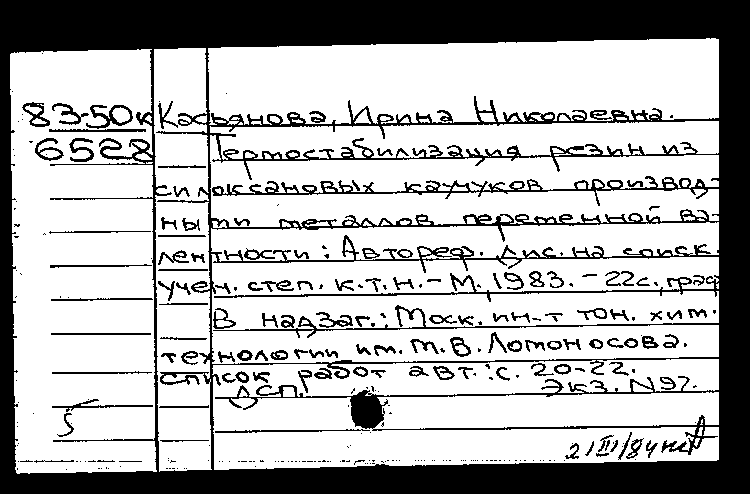 83-50к Касьянова, Ирина Николаевна.
6528 Термостабилизация резин из
силоксановых каучуков производ-
ными металлов переменной ва-
лентности: Автореф. дис. на соиск.
учен. степ. к.т.н. - М., 1983. - 22с., граф
В надзаг.: Моск. ин-т тон. хим.
технологии им. М.В. Ломоносова.
Список работ авт.: с. 20-22.
ДСП. Экз. N97.
5
21III/84